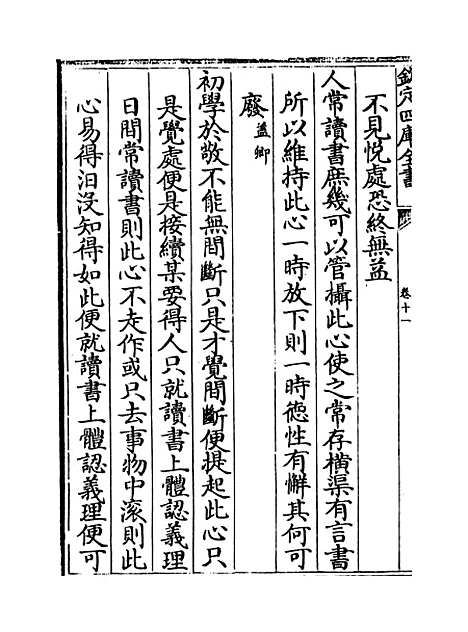 欽定四庫全書
卷十一
不見悅處恐終無益
人常讀書庶幾可以管攝此心使之常存橫渠有言書
所以維持此心一時放下則一時德性有懈其何可
廢蓋卿
初學於敬不能無間斷只是才覺間斷便提起此心只
是覺處便是接續某要得人只就讀書上體認義理
日間常讀書則此心不走作或只去事物中滚則此
心易得汨沒知得如此便就讀書上體認義理便可